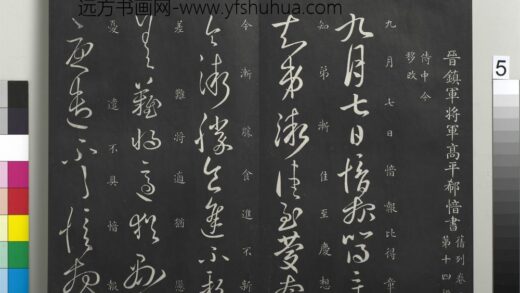 远方书画网-www.yfshuhua.com
晉鎮軍將軍高平郗愔書
舊列卷
第十四
侍中今
移改
九月七日愔報比得章
九月七日愔報比得章
知弟漸佳至慶想
知弟漸佳至慶想
今漸勝食進不新
今漸勝食進不新
差難將適猶懸
差難將適猶懸
憂遣不具愔報
憂遣不具愔報
5